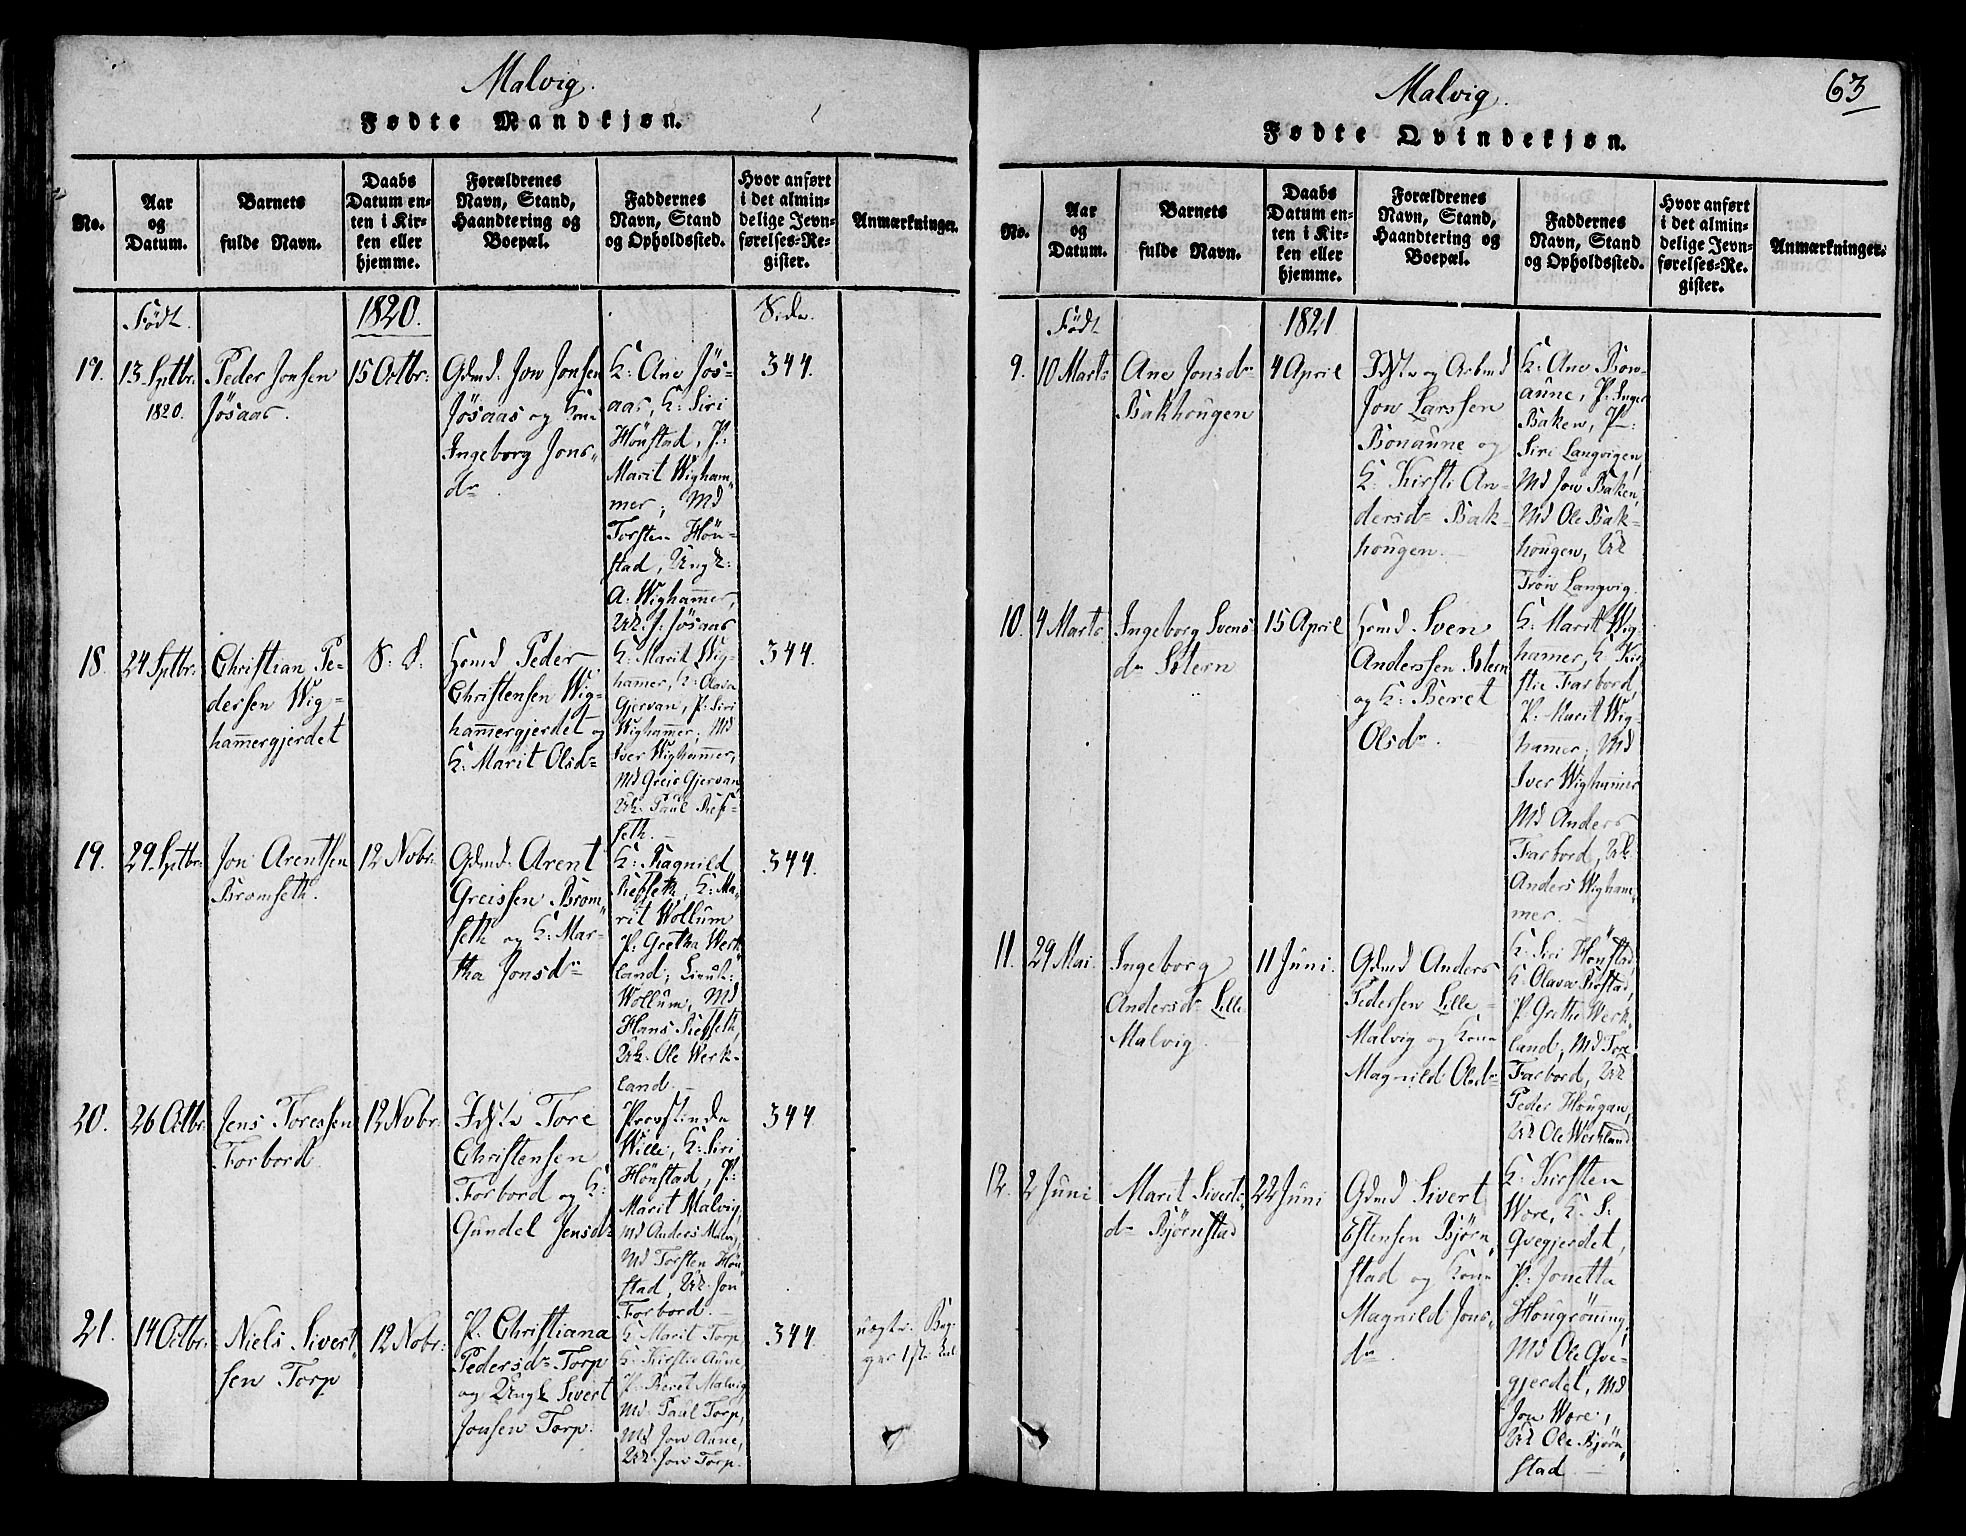 Malvig.
Fødte Mandkjøn.
No.
Aar
og
Datum.
Barnets
fulde Navn.
Daabs
Datum en-
ten i Kir-
ken eller
hjemme.
Forældrenes
Navn, Stand,
Haandtering og
Boepæl.
Faddernes
Navn, Stand
og Opholdssted.
Hvor anført
i det almin-
delige Jevn-
førelses-Re-
gister.
Anmærkninger.
Födt.
1820.
Side.
17.
13 Sptbr:
1820.
Peder Jonsen
Jösaas.
15 Octbr:
Gdmd: Jon Jonsen
Jösaas og Kone
Ingeborg Jons"
dr
K: Ane Jös=
aas, K: Siri
Hönstad, P:
Marit Wigham"
mer; Md
Torsten Hön=
stad, Ungk:
A: Wighammer,
Uk. J. Jösaas
344.
18.
24 Sptbr:
Christian Pe=
dersen Wig=
hammergjerdet
S: D:
Hsmd Peder
Christensen Wig=
hammergjerdet og
K: Marit Olsdr
K: Marit Wig=
hammer, K: Olava
Gjervan, P: Siri
Wighammer; Md
Iver Wighammer,
Md Greis Gjervan
Uk. Paul Ref=
seth.
344.
19.
29 Sptbr:
Jon Arentsen
Bromseth.
12 Nobr:
Gdmd: Arent
Greissen Brom"
seth og K: Mar=
tha Jonsdr
K: Ragnild
Refseth, K: Ma"
rit Wollum
P: Gretha Werk
land; Lieut:
Wollum, Md
Hans Refseth,
Uk. Ole Werk=
land.
344.
20.
26 Octbr.
Jens Toressen
Forbord.
12 Nobr:
Idste Tore
Christensen
Forbord og K:
Gundel Jensdr
Provstinde
Wille, K: Siri
Hönstad, P:
Marit Malvig,
Md Anders Malv:,
Md Torsten Hön
stad, Uk. Jon
Forbord.
344.
21.
14 Octbr.
Niels Sivert"
sen Torp
12 Nobr:
P. Christiana
Pedersdr Torp
og Ungk Sivert
Jonsen Torp.
K: Marit Torp
K: Kirstie Aune,
P: Beret Malvig
Md: Paul Torp,
Md Jon Aune,
Uk. Jon Torp.
344.
uægte. Beg
ges 1ste
Malvig.
63
Fødte Qvindekjøn.
No.
Aar
og
Datum.
Barnets
fulde Navn.
Daabs
Datum en-
ten i Kir-
ken eller
hjemme.
Forældrenes
Navn, Stand,
Haandtering og
Boepæl.
Faddernes
Navn, Stand
og Opholdssted.
Hvor anført
i det almin-
delige Jevn-
førelses-Re-
gister.
Anmærkninger.
Födt
1821
9.
10 Marts
Ane Jonsdr
Bakhougen
4 April
Idste og Arbmd
Jon Larssen
Bonaune og
K: Kirsti An=
dersdr Bak=
hougen.
K: Ane Bon=
aune, P: Inger
Baken, P:
Siri Langvigen,
Md Jon Baken,
Md Ole Bak=
hougen, Uk
Tron Langvig.
10.
4 Marts
Ingeborg Svens
dr Stern
15 April
Hsmd Sven
Anderssen Stern
og K: Beret
Olsdr.
K: Marit Wig=
hamer, K. Kir
stie Farbord,
P: Marit Wig=
hamer; Md
Iver Wighammer
Md Anders
Farbord, Uk
Anders Wigham"
mer.
11.
29 Mai.
Ingeborg
Andersdr Lille
Malvig.
11 Juni.
Gdmd Anders
Pedersen Lille=
Malvig og Kone
Magnild Olsdr
K: Siri Hönstad,
K: Olava
P: Grethe Werk
land; Md Tore
Farbord, Uk
Peder Hougan,
Uk Ole Werkland
12.
2 Juni
Marit Siverts"
dr Björnstad
22 Juni
Gdmd Sivert
Estensen Björn
stad og Kone
Magnild Jons"
dr.
K: Kirsten
Wore, K. S:
Qvegjerdet,
P: Jonetta
Hougrönning,
Md Ole Qve=
gjerdet, Md
Jon Wore,
Uk Ole Björn"
stad.